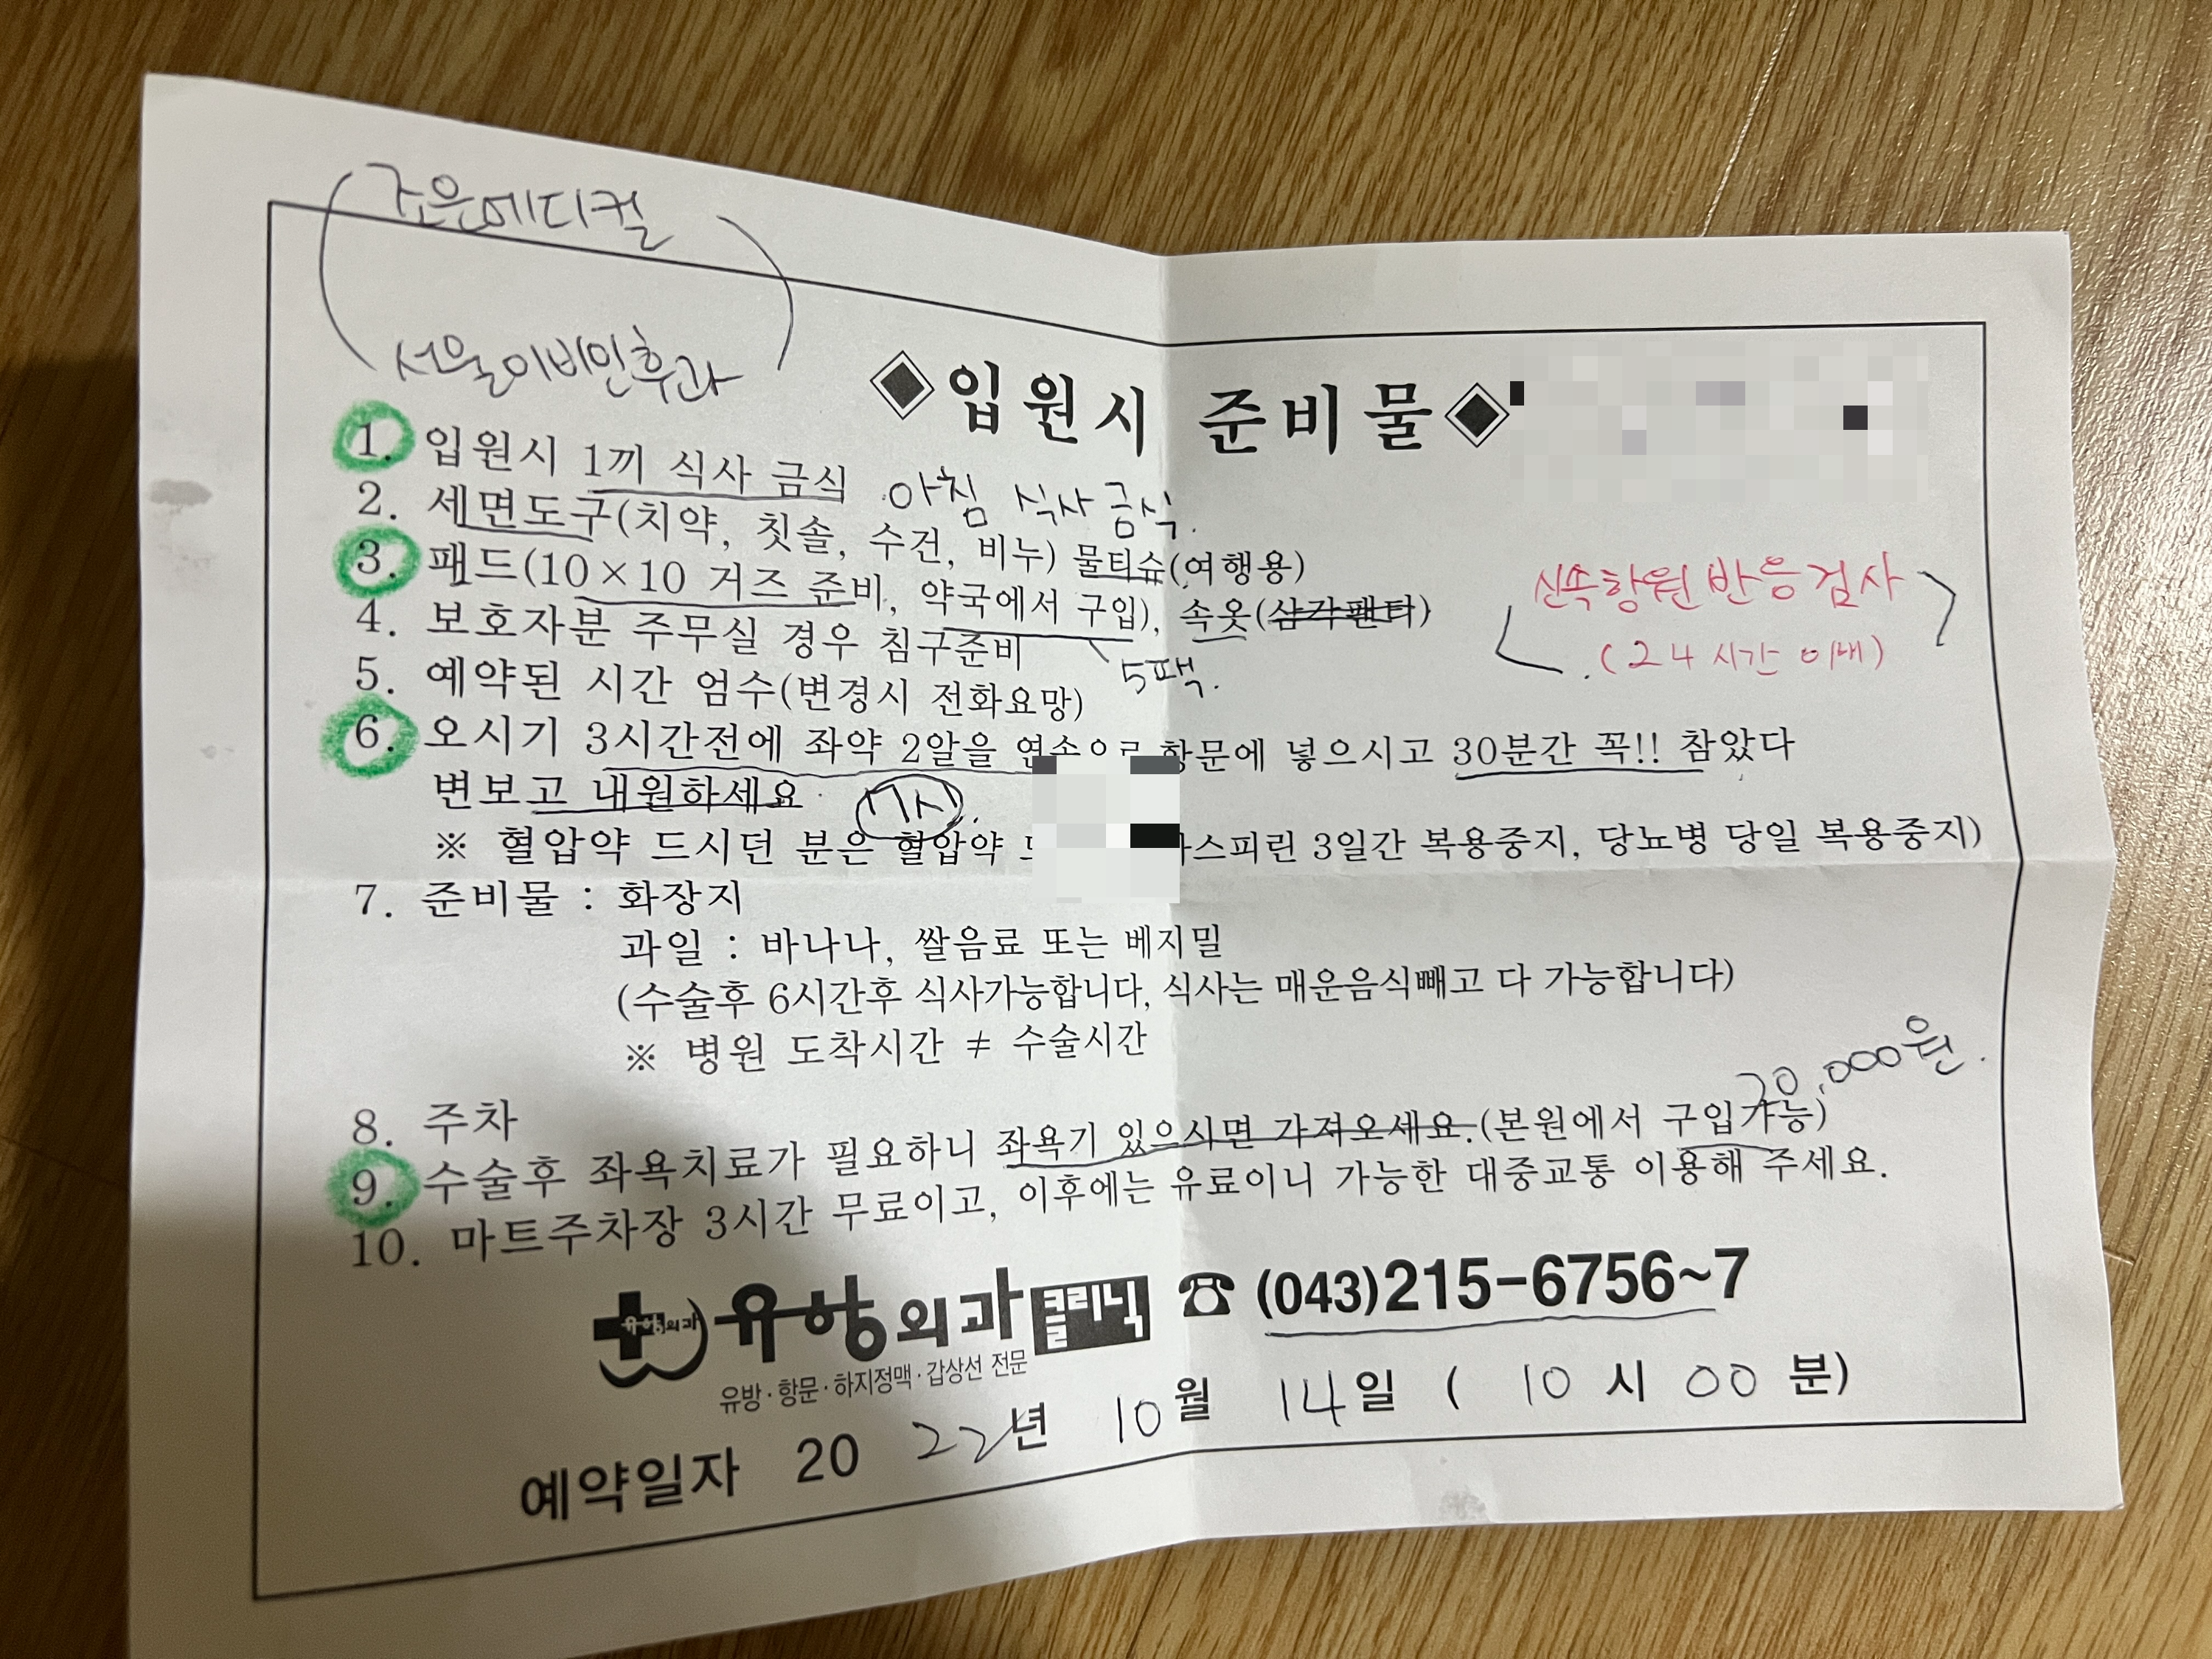 조은메디컬
서울이비인후과
◈입원시 준비물◈
1. 입원시 1끼 식사 금식 아침 식사 금식.
2. 세면도구(치약, 칫솔, 수건, 비누) 물티슈(여행용)
3. 패드(10×10 거즈 준비, 약국에서 구입), 속옷(삼각팬티)
5팩.
신속항원 반응검사
(24시간 이내)
4. 보호자분 주무실 경우 침구준비
5. 예약된 시간 엄수(변경시 전화요망)
6. 오시기 3시간전에 좌약 2알을 연속으로 항문에 넣으시고 30분간 꼭!! 참았다
변보고 내원하세요 7시.
※ 혈압약 드시던 분은 혈압약 스피린 3일간 복용중지, 당뇨병 당일 복용중지)
7. 준비물 : 화장지
과일 : 바나나, 쌀음료 또는 베지밀
(수술후 6시간후 식사가능합니다, 식사는 매운음식빼고 다 가능합니다)
※ 병원 도착시간 ≠ 수술시간
8. 주차
20,000원.
9. 수술후 좌욕치료가 필요하니 좌욕기 있으시면 가져오세요.(본원에서 구입가능)
10. 마트주차장 3시간 무료이고, 이후에는 유료이니 가능한 대중교통 이용해 주세요.
유항외과 유항외과클리닉 ☎ (043)215-6756~7
유방·항문·하지정맥·갑상선 전문
예약일자 2022년 10월 14일 ( 10시 00분)